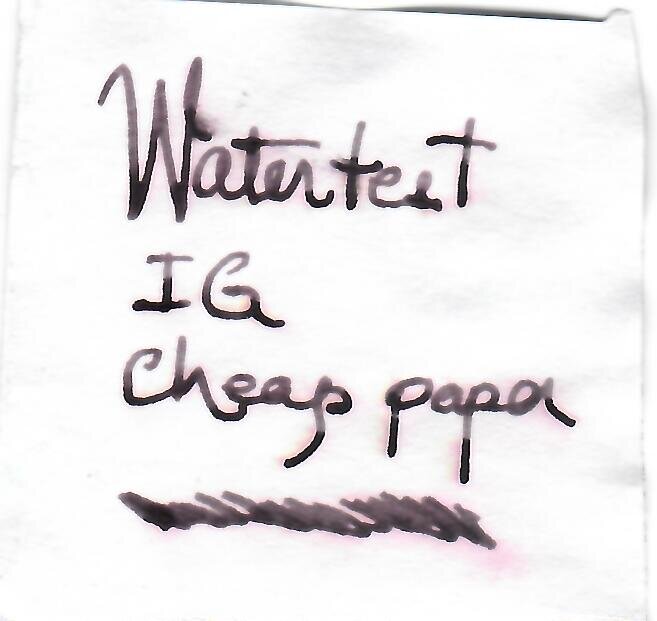 Water test
IG
Cheap papa